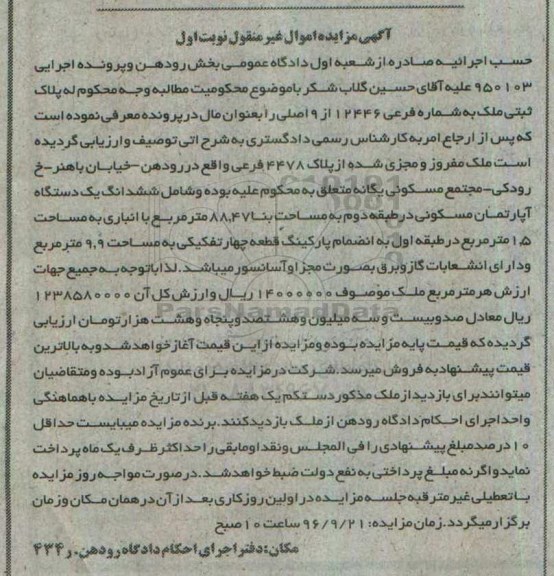 آگهی مزایده اموال غیر منقول نوبت اول
حسب اجرائیه صادره از شعبه اول دادگاه عمومی بخش رودهن و پرونده اجرایی
۹۵۰۱۰۳ علیه آقای حسین گلاب شکر با موضوع محکومیت مطالبه وجه محکوم له پلاک
ثبتی ملک به شماره فرعی ۱۲۴۴۶ از ۹ اصلی را بعنوان مال در پرونده معرفی نموده است
که پس از ارجاع امر به کارشناس رسمی دادگستری به شرح اتی توصیف و ارزیابی گردیده
است ملک مفروز و مجزی شده از پلاک ۴۴۷۸ فرعی واقع در رودهن-خیابان باهنر-خ
رودکی-مجتمع مسکونی یگانه متعلق به محکوم علیه بوده و شامل ششدانگ یک دستگاه
آپارتمان مسکونی در طبقه دوم به مساحت بنا ۸۸,۴۷ متر مربع با انباری به مساحت
۱,۵ متر مربع در طبقه اول به انضمام پارکینگ قطعه چهار تفکیکی به مساحت ۹,۹ متر مربع
و دارای انشعابات گاز و برق بصورت مجزا و آسانسور میباشد. لذا با توجه به جمیع جهات
ارزش هر متر مربع ملک موصوف ۱۴۰۰۰۰۰۰ ریال و ارزش کل آن ۱۲۳۸۵۸۰۰۰۰
ریال معادل صد و بیست و سه میلیون و هشتصد و پنجاه و هشت هزار تومان ارزیابی
گردیده که قیمت پایه مزایده بوده و مزایده از این قیمت آغاز خواهد شد و به بالاترین
قیمت پیشنهاد به فروش میرسد. شرکت در مزایده برای عموم آزاد بوده و متقاضیان
میتوانند برای بازدید از ملک مذکور دستکم یک هفته قبل از تاریخ مزایده با هماهنگی
واحد اجرای احکام دادگاه رودهن از ملک بازدید کنند. برنده مزایده میبایست حداقل
۱۰ درصد مبلغ پیشنهادی را فی المجلس و نقدا و مابقی را حداکثر ظرف یک ماه پرداخت
نماید و اگر نه مبلغ پرداختی به نفع دولت ضبط خواهد شد. در صورت مواجه روز مزایده
با تعطیلی غیر مترقبه جلسه مزایده در اولین روز کاری بعد از آن در همان مکان و زمان
برگزار میگردد. زمان مزایده: ۹۶/۹/۲۱ ساعت ۱۰ صبح
مکان: دفتر اجرای احکام دادگاه رودهن. ر ۴۳۴
ParsNamadData